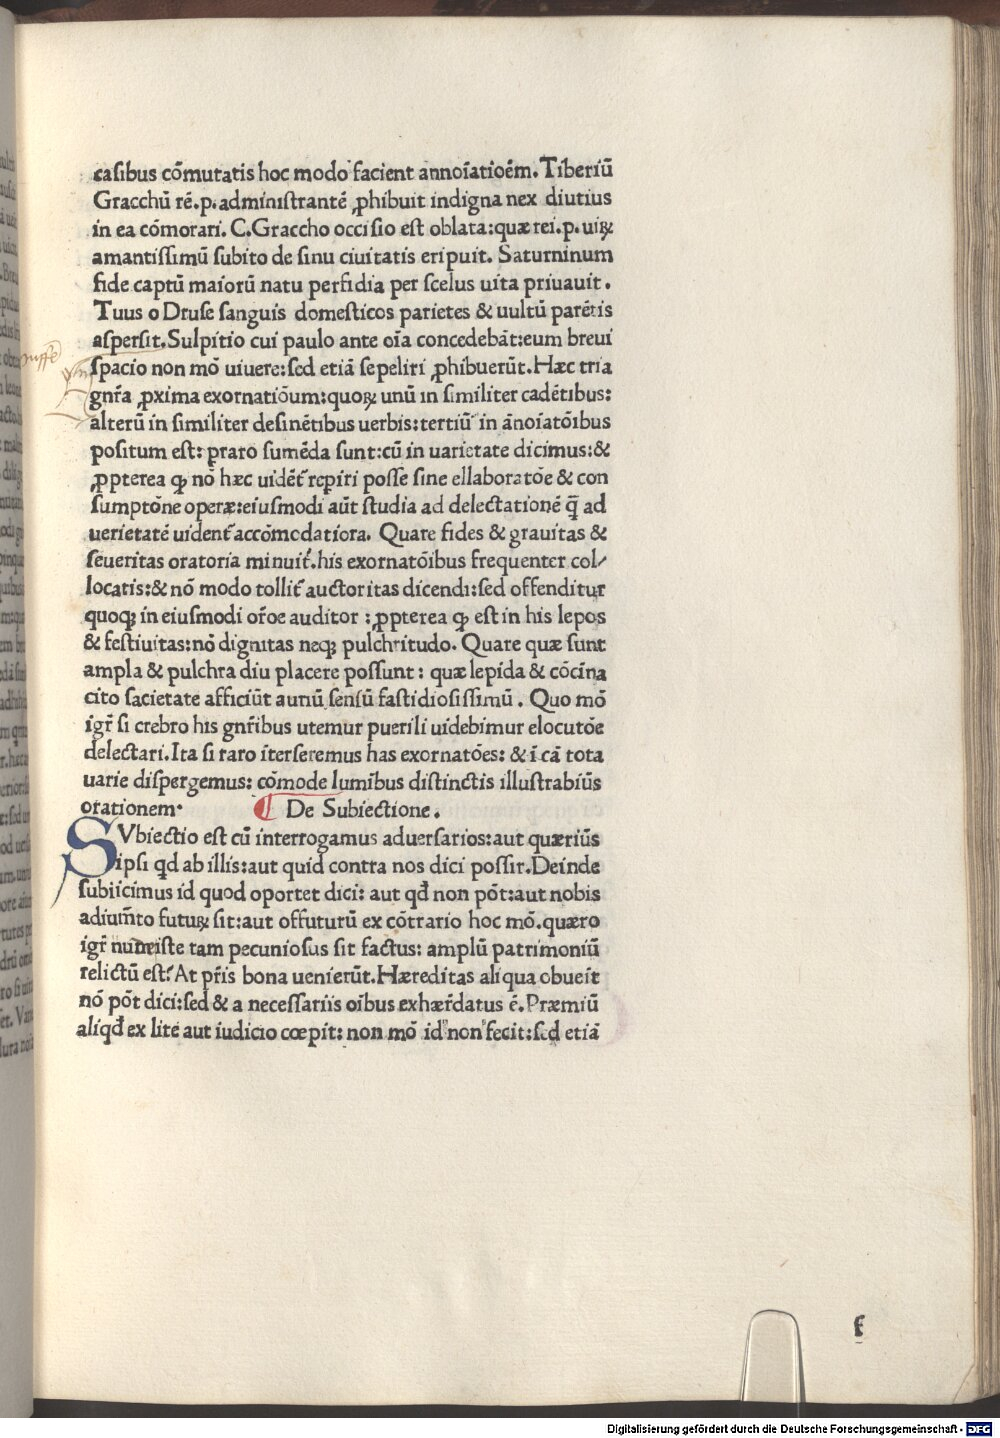 casibus cōmutatis hoc modo facient annoīatioēm. Tiberiū
Gracchū rē.p. administrantē ꝓhibuit indigna nex diutius
in ea cōmorari. C. Graccho occisio est oblata: quæ rei.p. uiꝝ
amantissimū subito de sinu ciuitatis eripuit. Saturninum
fide captū maiorū natu perfidia per scelus uita priuauit.
Tuus o Druse sanguis domesticos parietes & uultū parētis
aspersit. Sulpitio cui paulo ante oīa concedebāt: eum breui
spacio non mō uiuere: sed etiā sepeliri ꝓhibuerūt. Hæc tria
gn̄ra ꝓxima exornatiōum: quoꝝ unū in similiter cadētibus:
alterū in similiter desinētibus uerbis: tertiū in ānoīatōibus
positum est: praro sumēda sunt: cū in uarietate dicimus: &
ꝓpterea ꝙ nō hæc uidēt᷑ repiri posse sine ellaboratōe & con
sumptōne operæ: eiusmodi aūt studia ad delectationē q̄ ad
uerietatē uident᷑ accōmodatiora. Quare fides & grauitas &
seueritas oratoria minuit᷑. his exornatōibus frequenter col/
locatis: & nō modo tollit᷑ auctoritas dicendi: sed offenditur
quoqꝫ in eiusmodi or̄oe auditor : ꝓpterea ꝙ est in his lepos
& festiuitas: nō dignitas neqꝫ pulchritudo. Quare quæ sunt
ampla & pulchra diu placere possunt : quæ lepida & cōcīna
cito sacietate afficiūt auriū sensū fastidiosissimū . Quo mō
igr̄ si crebro his gn̄ribus utemur puerili uidebimur elocutōe
delectari. Ita si raro īterseremus has exornatōes: & ī cā tota
uarie dispergemus: cōmode lumībus distinctis illustrabiūs
orationem. ¶ De Subiectione.
SVbiectio est cū interrogamus aduersarios: aut quæriūs
ipsi qd ab illis: aut quid contra nos dici possir. Deinde
subiicimus id quod oportet dici: aut qđ non pōt: aut nobis
adium̄to futuꝝ sit: aut offuturū ex cōtrario hoc mō. quæro
igr̄ nunciste tam pecuniosus sit factus: amplū patrimoniū
relictū est? At pr̄is bona uenierūt. Hæreditas aliqua obueīt
nō pōt dici: sed & a necessariis oībus exhær̄datus ē. Præmiū
alíqđ ex lite aut iudicio cœpit: non mō id non fecit: sed etiā
f
Digitalisierung gefördert durch die Deutsche Forschungsgemeinschaft - DFG